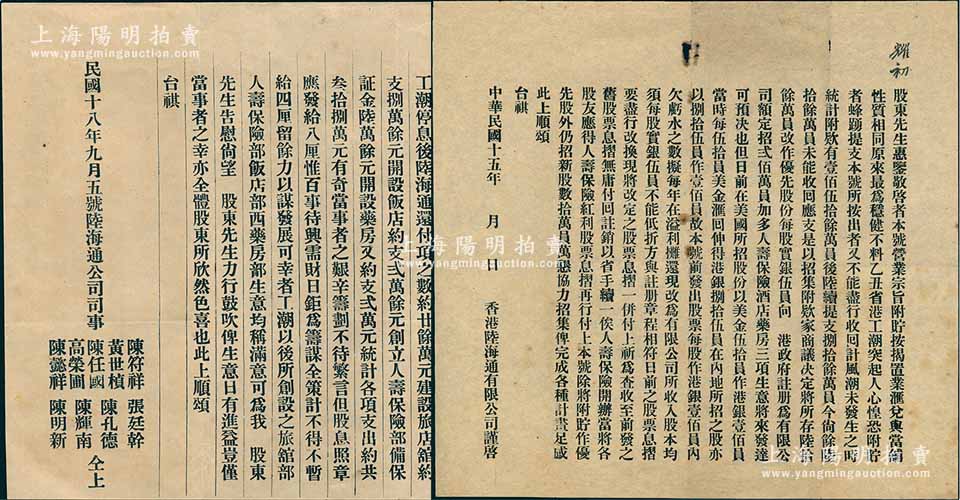 上海陽明拍賣
www.yangmingauction.com
上海陽明拍賣
www.yangmingauction.com
耀初
股東先生惠鑒敬啓者本號營業宗旨附貯按揭置業滙兌與當舖
性質相同原來最爲穩健不料乙丑省港工潮突起人心惶恐附貯
者蜂踴提支本號所按出者又不能盡行收回計風潮未發生之時
統計附欵有壹佰伍拾餘萬員後陸續提支捌拾餘萬員今尙餘陸
拾餘萬員未能收回應支是以招集附欵家商議決定將所存陸拾
餘萬員改作優先股份每股實銀伍員向 港政府註册爲有限公
司額定招弍佰萬員加多人壽保險酒店藥房三項生意將來發達
可預決也但日前在美國所招股份以美金伍拾員作港銀壹佰員
當時每伍拾員美金滙回伸得港銀捌拾伍員在內地所招之股亦
以捌拾伍員作壹佰員故本號前發出股票每股作港銀壹佰員內
欠虧水之數擬每年在溢利攤還現改爲有限公司所收入股本均
須每股實銀伍員不能低折方與註册章程相符日前之股票息摺
要盡行改換現將改定之股票息摺一併付上祈爲查收至前發之
舊股票息摺無庸付回註銷以省手續一俟人壽保險開辦當將各
股友應得人壽保險紅利股票息摺再行付上本號除將附貯作優
先股外仍招新股數拾萬員萬懇協力招集俾完成各種計畫足感
此上順頌
台祺
中華民國十五年 月 日 香港陸海通有限公司謹啓
工潮停息後陸海通還付項之數約廿餘萬元建設旅店舘約
支捌萬餘元開設飯店約支弍萬餘元創立人壽保險部備保
証金陸萬餘元開設藥房又約支弍萬元統計各項支出約共
叁拾捌萬元有奇當事者之艱辛籌劃不待繁言但股息照章
應發給八厘惟百事待興需財日鉅爲籌謀全策計不得不暫
給四厘留餘力以謀發展可幸者工潮以後所創設之旅舘部
人壽保險部飯店部西藥房部生意均稱滿意可爲我 股東
先生告慰尙望 股東先生力行鼓吹俾生意日有進益豈僅
當事者之幸亦全體股東所欣然色喜也此上順頌
台祺
民國十八年九月五號陸海通公司司事
陳符祥 張廷幹
黃世楨 陳孔德
陳任國 陳輝南
高榮圃 陳明新
陳懿祥 仝上